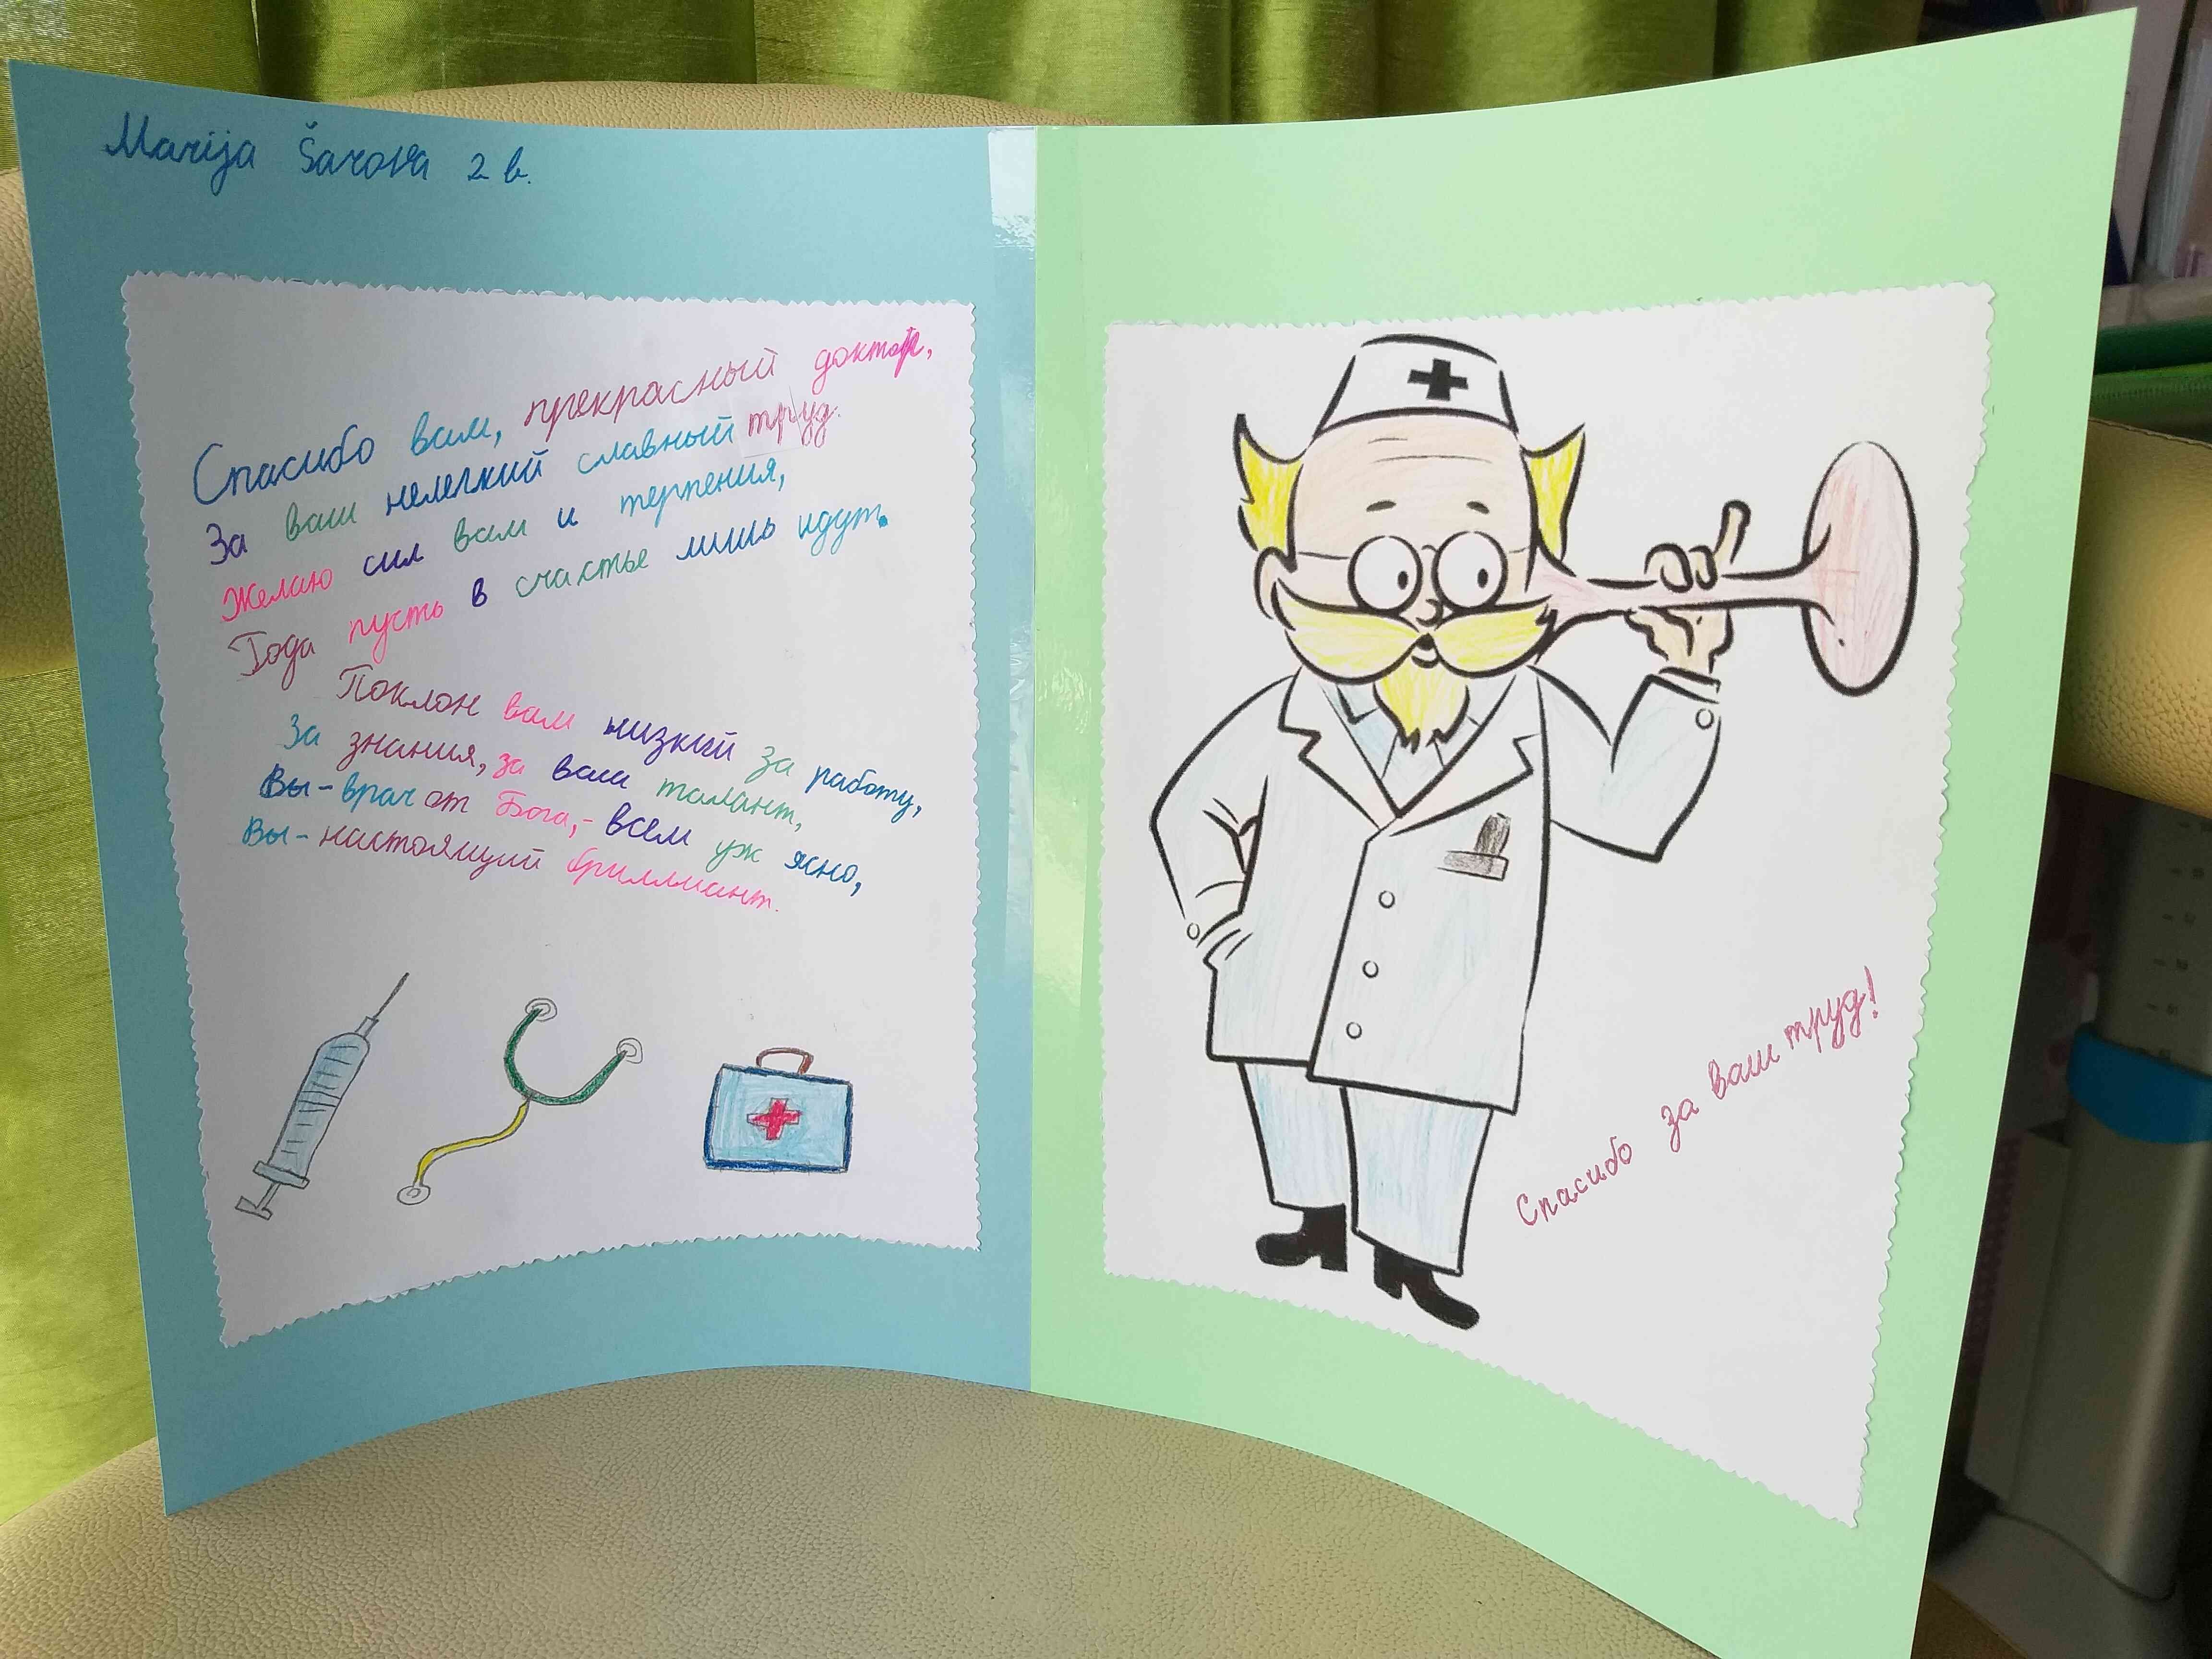 Marija Šarova 2 b.
Спасибо вам, прекрасный доктор,
За ваш нелегкий славный труд.
Желаю сил вам и терпения,
Года пусть в счастье лишь идут.
Поклон вам низкий за работу,
За знания, за ваш талант,
Вы - врач от Бога, - всем уж ясно,
Вы - настоящий бриллиант.
Спасибо за ваш труд!